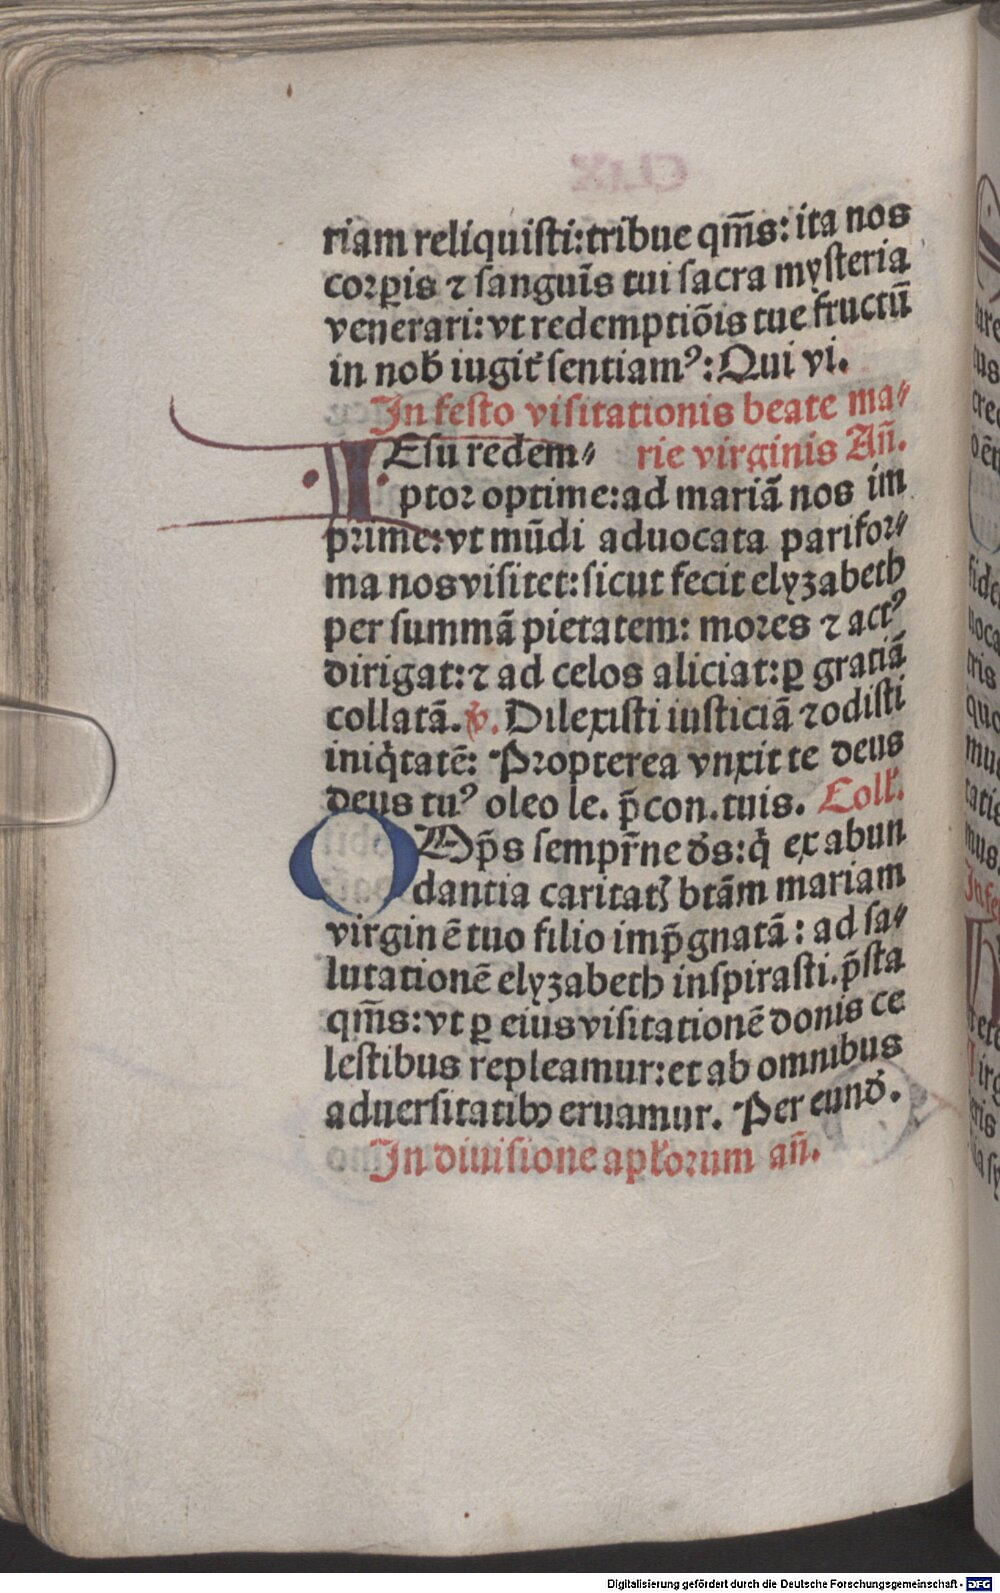 riam reliquisti: tribue qm̄s: ita nos
corꝑis ⁊ sanguīs tui sacra mysteria
venerari: vt redemptiōis tue fructū
in nob̄ iugit᷒ sentiamꝰ: Qui vi.
In festo visitationis beate ma⸗
IEsu redem⸗ rie virginis Añ.
ptor optime: ad mariā nos im
prime: vt mūdi aduocata parifor⸗
ma nos visitet: sicut fecit elyzabeth
per summā pietatem: mores ⁊ actꝰ
dirigat: ⁊ ad celos aliciat: ꝑ gratiā
collatā. ꝟ. Dilexisti iusticiā ⁊ odisti
iniq̇tatē: Propterea vnxit te deus
deus tuꝰ oleo le. p̄ con. tuis. Coll᷒.
OMp̄s sempr̄ne d̄s: q̇ ex abun
dantia caritat᷒ btām mariam
virginē tuo filio imp̄gnatā: ad sa⸗
lutationē elyzabeth inspirasti. p̄sta
qm̄s: vt ꝑ eius visitationē donis ce
lestibus repleamur: et ab omnibus
aduersitatibꝫ eruamur. Per eund̄.
In diuisione apl̄orum añ.
Digitalisierung gefördert durch die Deutsche Forschungsgemeinschaft - DFG